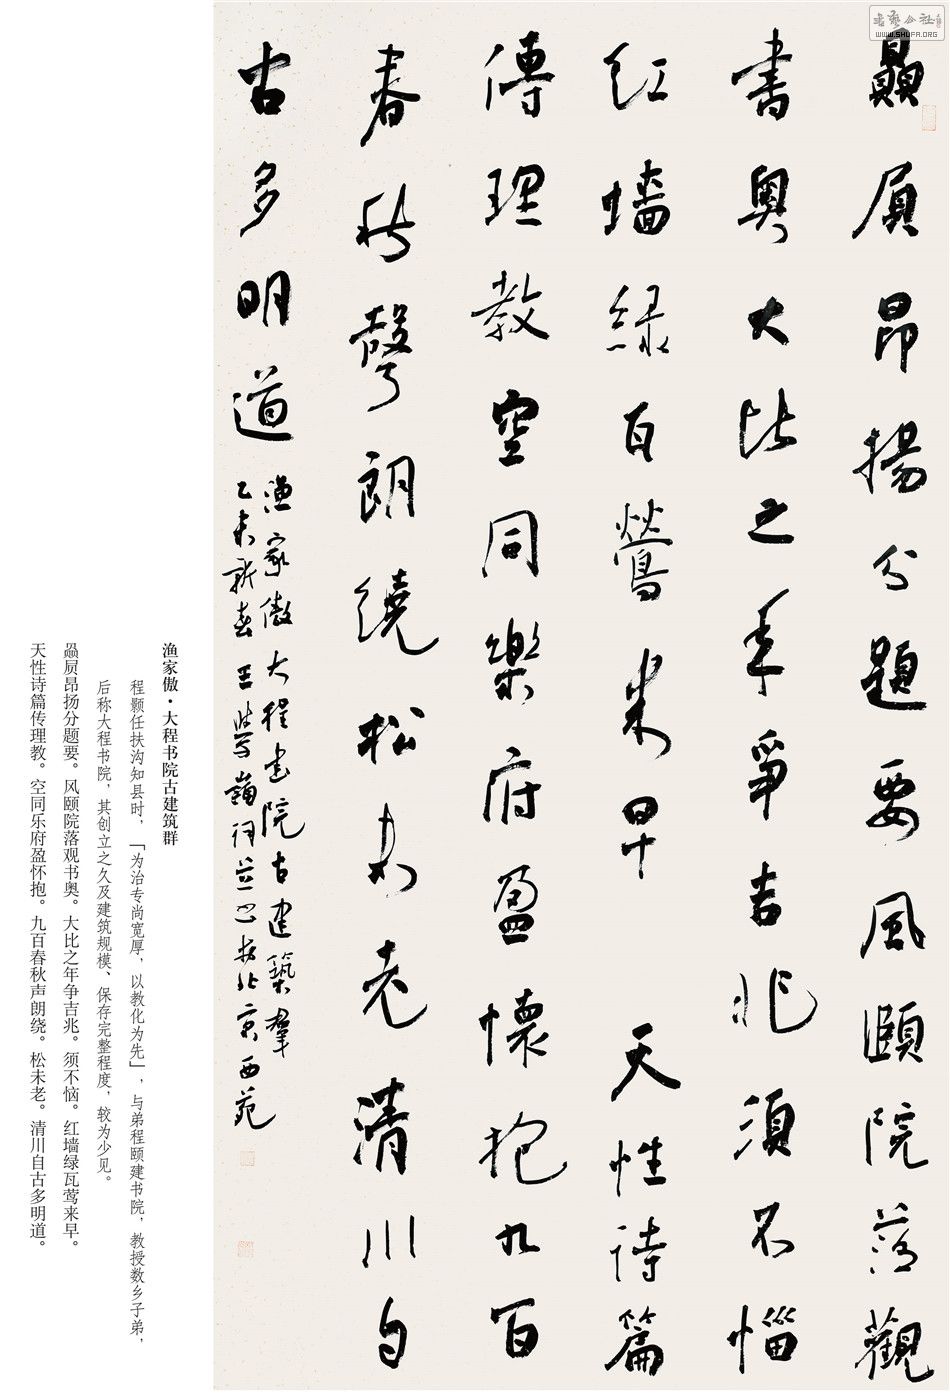 贔屓昂揚分題要風頤院落觀
書奧大比之年爭吉兆須不惱
紅墻綠瓦鶯來早 天性詩篇
傳理教空同樂府盈懷抱九百
春秋聲朗繞松未老清川自
古多明道
漁家傲 大程書院古建築群
乙未新春 王學嶺詞并書於北京西苑
渔家傲·大程书院古建筑群
程颢任扶沟知县时,「为治专尚宽厚,以教化为先」,与弟程颐建书院,教授数乡子弟,
后称大程书院,其创立之久及建筑规模、保存完整程度,较为少见。
赑屃昂扬分题要。风颐院落观书奥。大比之年争吉兆。须不恼。红墙绿瓦莺来早。
天性诗篇传理教。空同乐府盈怀抱。九百春秋声朗绕。松未老。清川自古多明道。
WWW.SHUFA.ORG